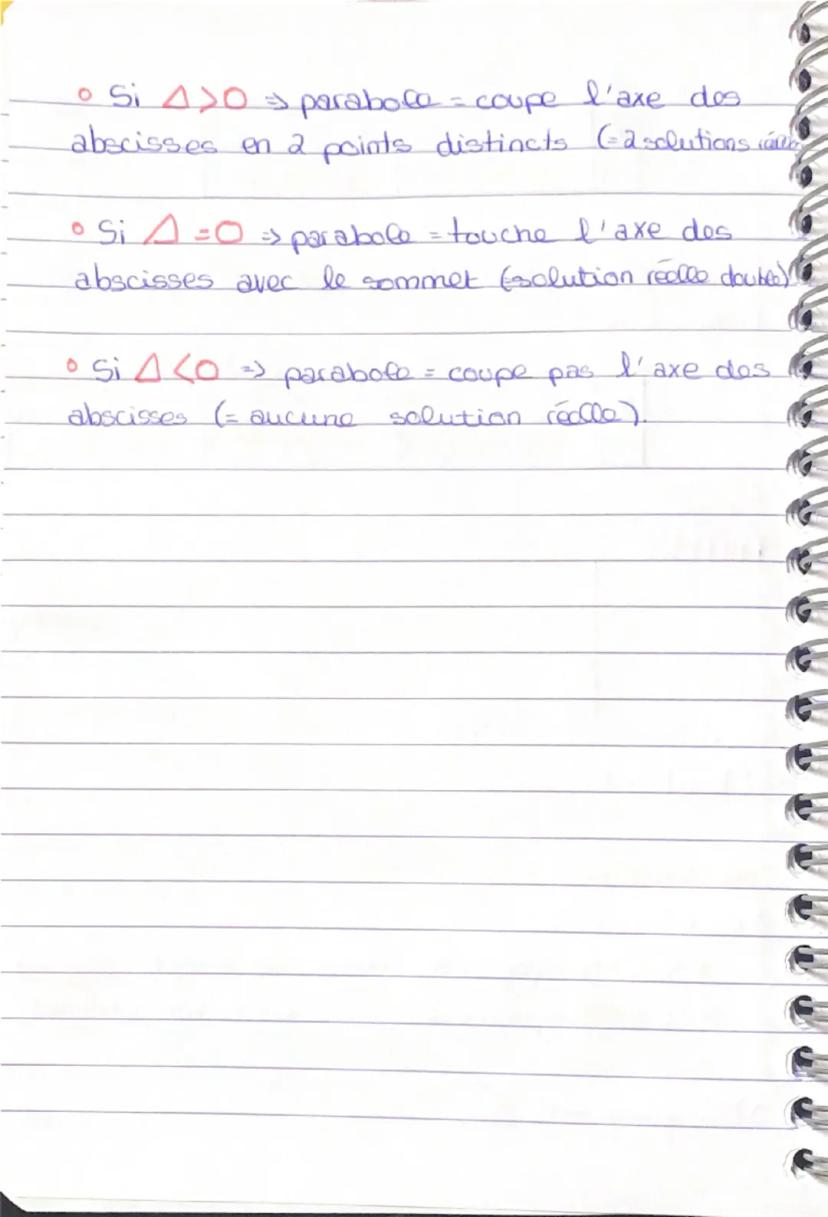 ° Si Δ>0 => parabole = coupe l'axe des
abscisses en 2 points distincts (=2 solutions
° Si Δ=0 => parabole = touche l'axe des
abscisses avec le sommet (solution réelle double)
° Si Δ<0 => parabole = coupe pas l'axe des
abscisses (= aucune solution réelle).